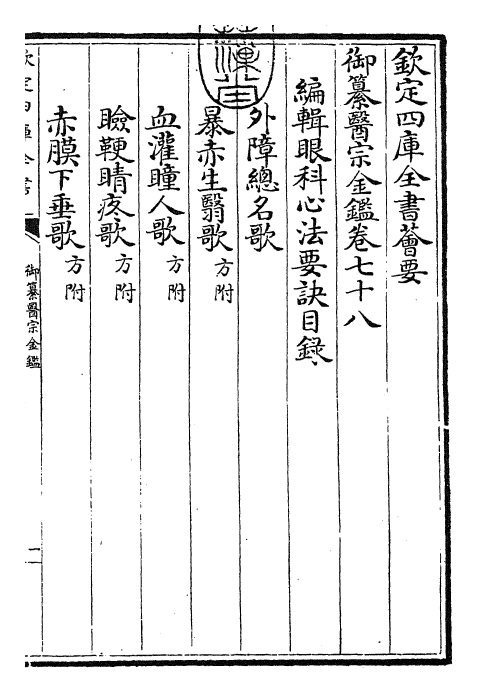 欽定四庫全書薈要
御纂醫宗金鑑卷七十八
編輯眼科心法要訣目錄
外障總名歌
暴赤生翳歌方附
血灌瞳人歌方附
瞼硬睛疼歌方附
赤膜下垂歌方附
欽定四庫全書
御纂醫宗金鑑
一